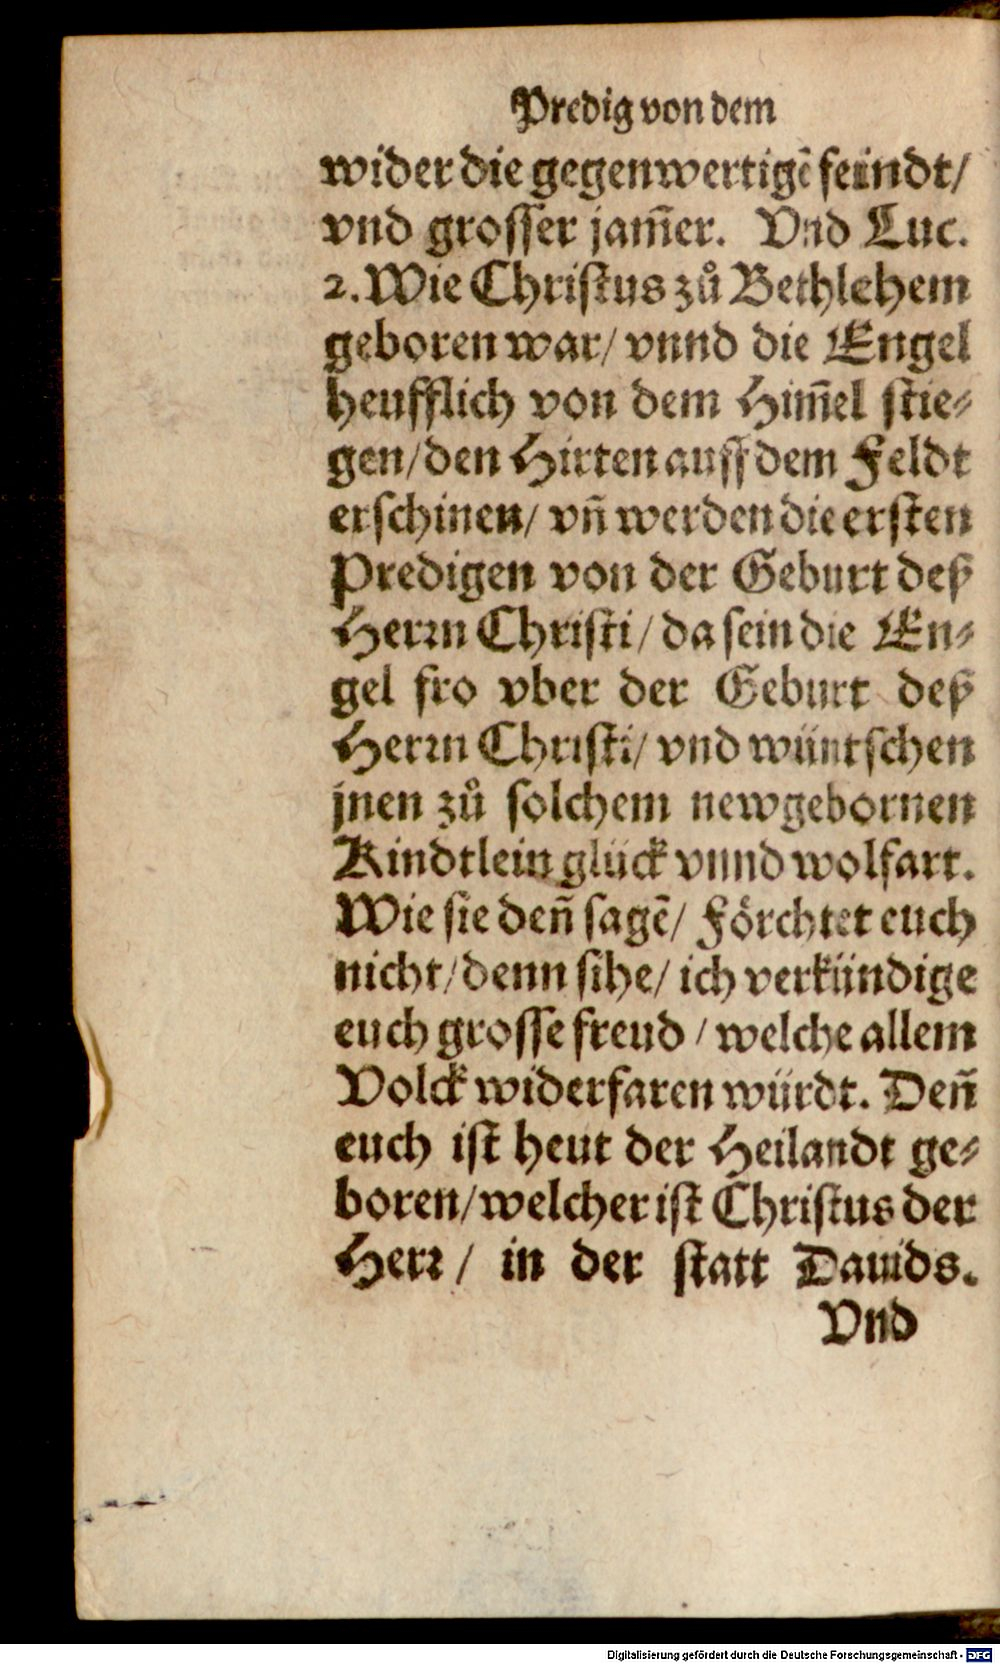 Predig von dem
wider die gegenwertigē feindt/
vnd grosser jam̃er. Vnd Luc.
2. Wie Christus zů Bethlehem
geboren war/ vnnd die Engel
heufflich von dem Him̃el stie⸗
gen/ den Hirten auff dem Feldt
erschinen/ vñ werden die ersten
Predigen von der Geburt deß
Herꝛn Christi/ da sein die En⸗
gel fro vber der Geburt deß
Herꝛn Christi/ vnd wüntschen
jnen zů solchem newgebornen
Kindtlein glück vnnd wolfart.
Wie sie deñ sagē/ Förchtet euch
nicht/ denn sihe/ ich verkündige
euch grosse freud / welche allem
Volck widerfaren würdt. Deñ
euch ist heut der Heilandt ge⸗
boren/ welcher ist Christus der
Herꝛ/ in der statt Dauids.
Vnd
Digitalisierung gefördert durch die Deutsche Forschungsgemeinschaft - DFG